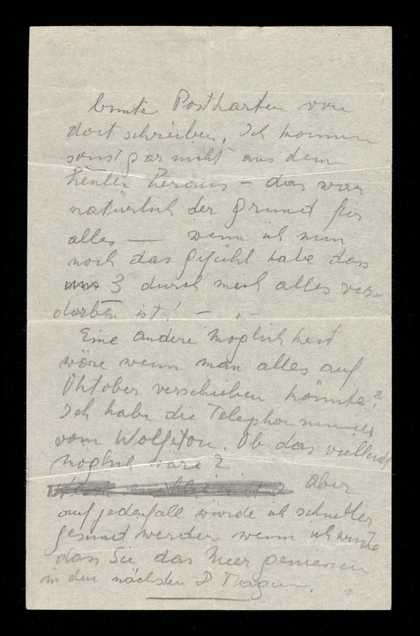 bunte Postkarten von
dort schreiben. Ich komme
sonst gar nicht aus dem
heraus – das war
natürlich der Grund für
alles — wenn ich nun
noch das Gefühl habe dass
uns 3 durch mich alles ver-
dorben ist! – . –
Eine andere Möglichkeit
wäre wenn man alles auf
Oktober verschieben könnte?
Ich habe die Telephonnummer
vom Wolfitou. Ob das vielleicht
möglich wäre?
Aber
auf jedenfall würde ich schneller
gesund werden wenn ich wüsste
dass Sie das Meer geniessen
in den nächsten Tagen.